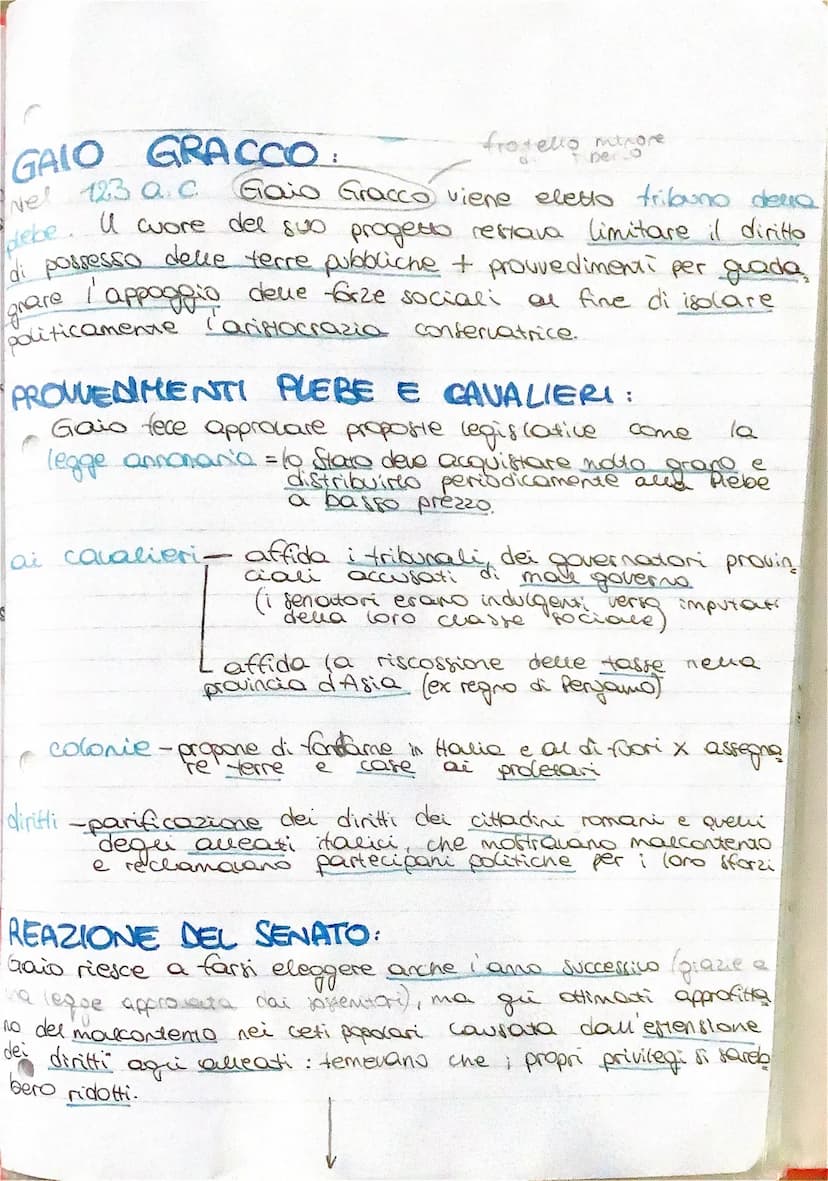 GAIO GRACCO:
fratello minore
Nel 123 a.C. Gaio Gracco viene eletto tribuno della
plebe. Il cuore del suo progetto restava limitare il diritto
di possesso delle terre pubbliche + provvedimenti per guada
gnare l'appoggio delle forze sociali al fine di isolare
politicamente l'aristocrazia conservatrice.
PROVVEDIMENTI PLEBE E CAVALIERI:
Gaio fece approvare proposte legislative come la
legge annonaria = lo Stato deve acquistare molto grano e
distribuirlo periodicamente alla Plebe
a basso prezzo.
ai cavalieri - affida i tribunali dei governatori provin
ciali accusati di mal governo
(i senatori erano indulgenti verso imputati
della loro classe sociale)
affida la riscossione delle tasse nella
provincia d'Asia (ex regno di Pergamo)
colonie - propone di fondarne in Italia e al di fuori x assegna
re terre e case ai proletari
diritti - parificazione dei diritti dei cittadini romani e quelli
degli alleati italici, che mostravano malcontento
e reclamavano partecipani politiche per i loro sforzi
REAZIONE DEL SENATO:
Gaio riesce a farsi eleggere anche l'anno successivo (grazie a
una legge approvata dai sostenitori), ma gli ottimati approfitta
no del malcontento nei ceti popolari causata dall'estensione
dei diritti agli alleati: temevano che i propri privilegi si sareb
bero ridotti.